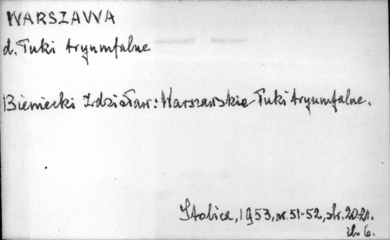 WARSZAWA
d. Łuki tryumfalne
Bieniecki Zdzisław: Warszawskie Łuki tryumfalne.
Stolica, 1953, nr. 51-52, str. 20-21.
il. 6.